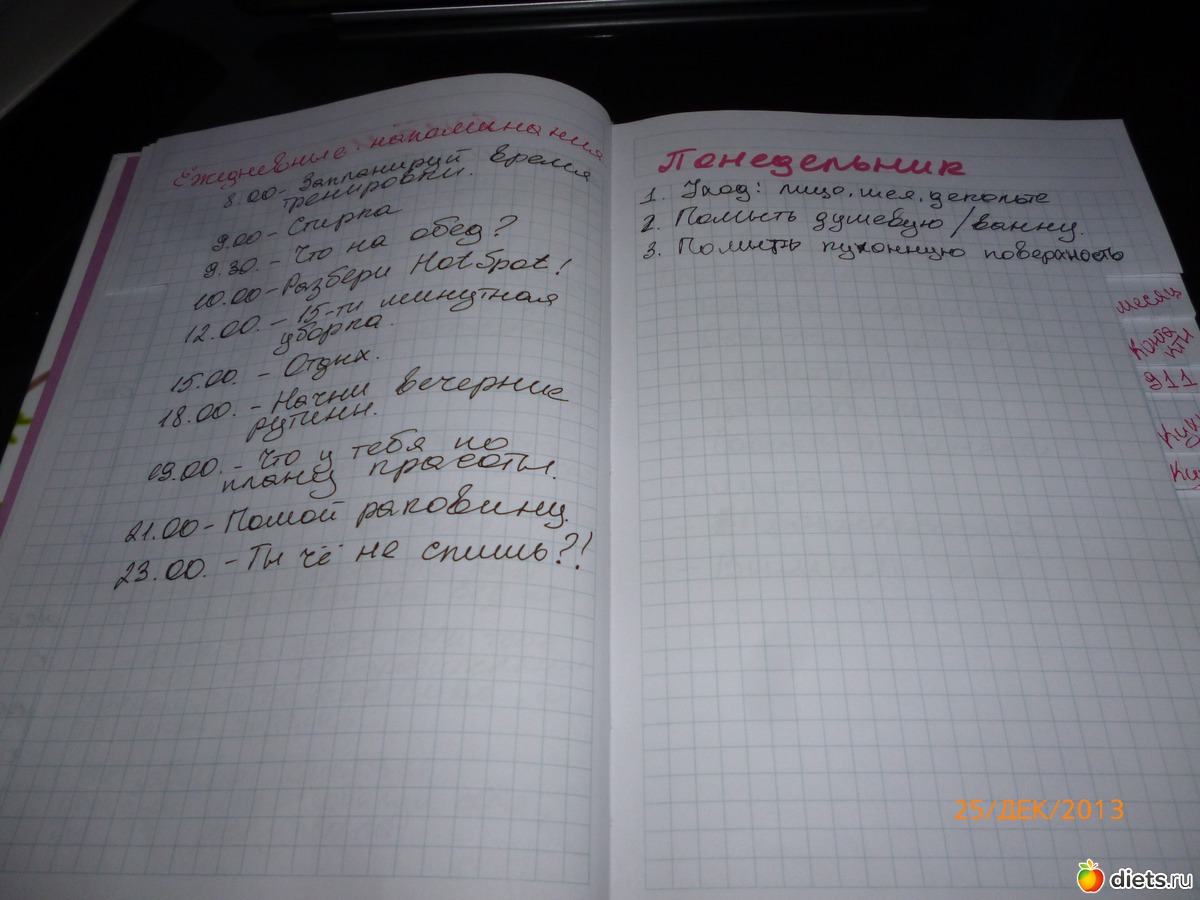 Ежедневные напоминания
8.00 - Запланируй время
тренировки.
9.00 - Стирка
9.30. - Что на обед?
10.00 - Разбери HotSpot!
12.00. - 15-ти минутная
уборка.
15.00. - Отдых.
18.00. - Начни вечерние
рутины.
19.00. - Что у тебя по
плану красоты.
21.00 - Помой раковину.
23.00. - Ты чё не спишь?!
Понедельник
1. Уход: лицо, шея, декольте
2. Помыть душевую / ванну.
3. Помыть кухонную поверхность
месяц
Конта
кты
911
25/ДЕК/2013
diets.ru